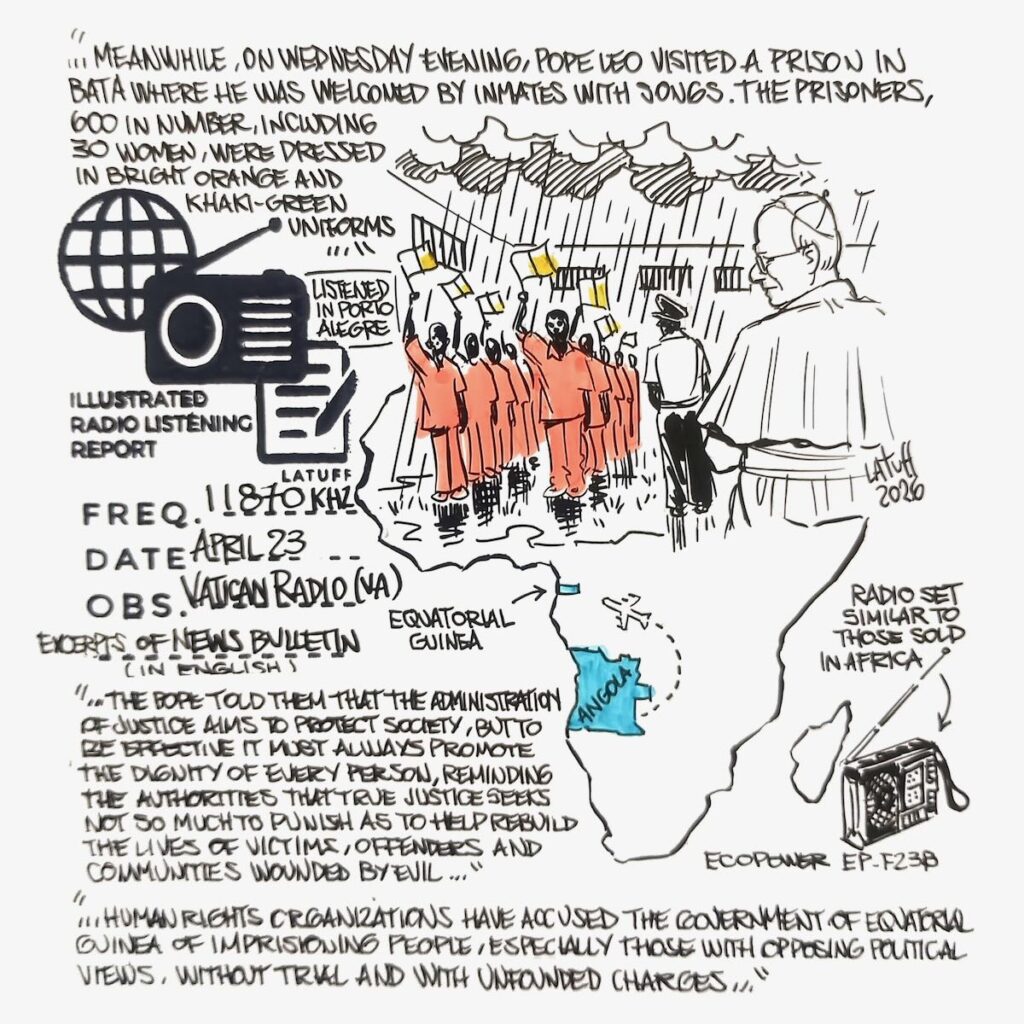 "... MEANWHILE, ON WEDNESDAY EVENING, POPE LEO VISITED A PRISON IN
BATA WHERE HE WAS WELCOMED BY INMATES WITH SONGS. THE PRISONERS,
600 IN NUMBER, INCLUDING
30 WOMEN, WERE DRESSED
IN BRIGHT ORANGE AND
KHAKI-GREEN
UNIFORMS
..."
LISTENED
IN PORTO
ALEGRE
ILLUSTRATED
RADIO LISTENING
REPORT
LATUFF
FREQ. 11870 KHZ
DATE APRIL 23
OBS. VATICAN RADIO (VA)
EXCERPTS OF NEWS BULLETIN
(IN ENGLISH)
LATUFF
2026
EQUATORIAL
GUINEA
ANGOLA
RADIO SET
SIMILAR TO
THOSE SOLD
IN AFRICA
ECOPOWER EP-F23B
"... THE POPE TOLD THEM THAT THE ADMINISTRATION
OF JUSTICE AIMS TO PROTECT SOCIETY, BUT TO
BE EFFECTIVE IT MUST ALWAYS PROMOTE
THE DIGNITY OF EVERY PERSON, REMINDING
THE AUTHORITIES THAT TRUE JUSTICE SEEKS
NOT SO MUCH TO PUNISH AS TO HELP REBUILD
THE LIVES OF VICTIMS, OFFENDERS AND
COMMUNITIES WOUNDED BY EVIL ..."
"... HUMAN RIGHTS ORGANIZATIONS HAVE ACCUSED THE GOVERNMENT OF EQUATORIAL
GUINEA OF IMPRISIONING PEOPLE, ESPECIALLY THOSE WITH OPPOSING POLITICAL
VIEWS, WITHOUT TRIAL AND WITH UNFOUNDED CHARGES ..."